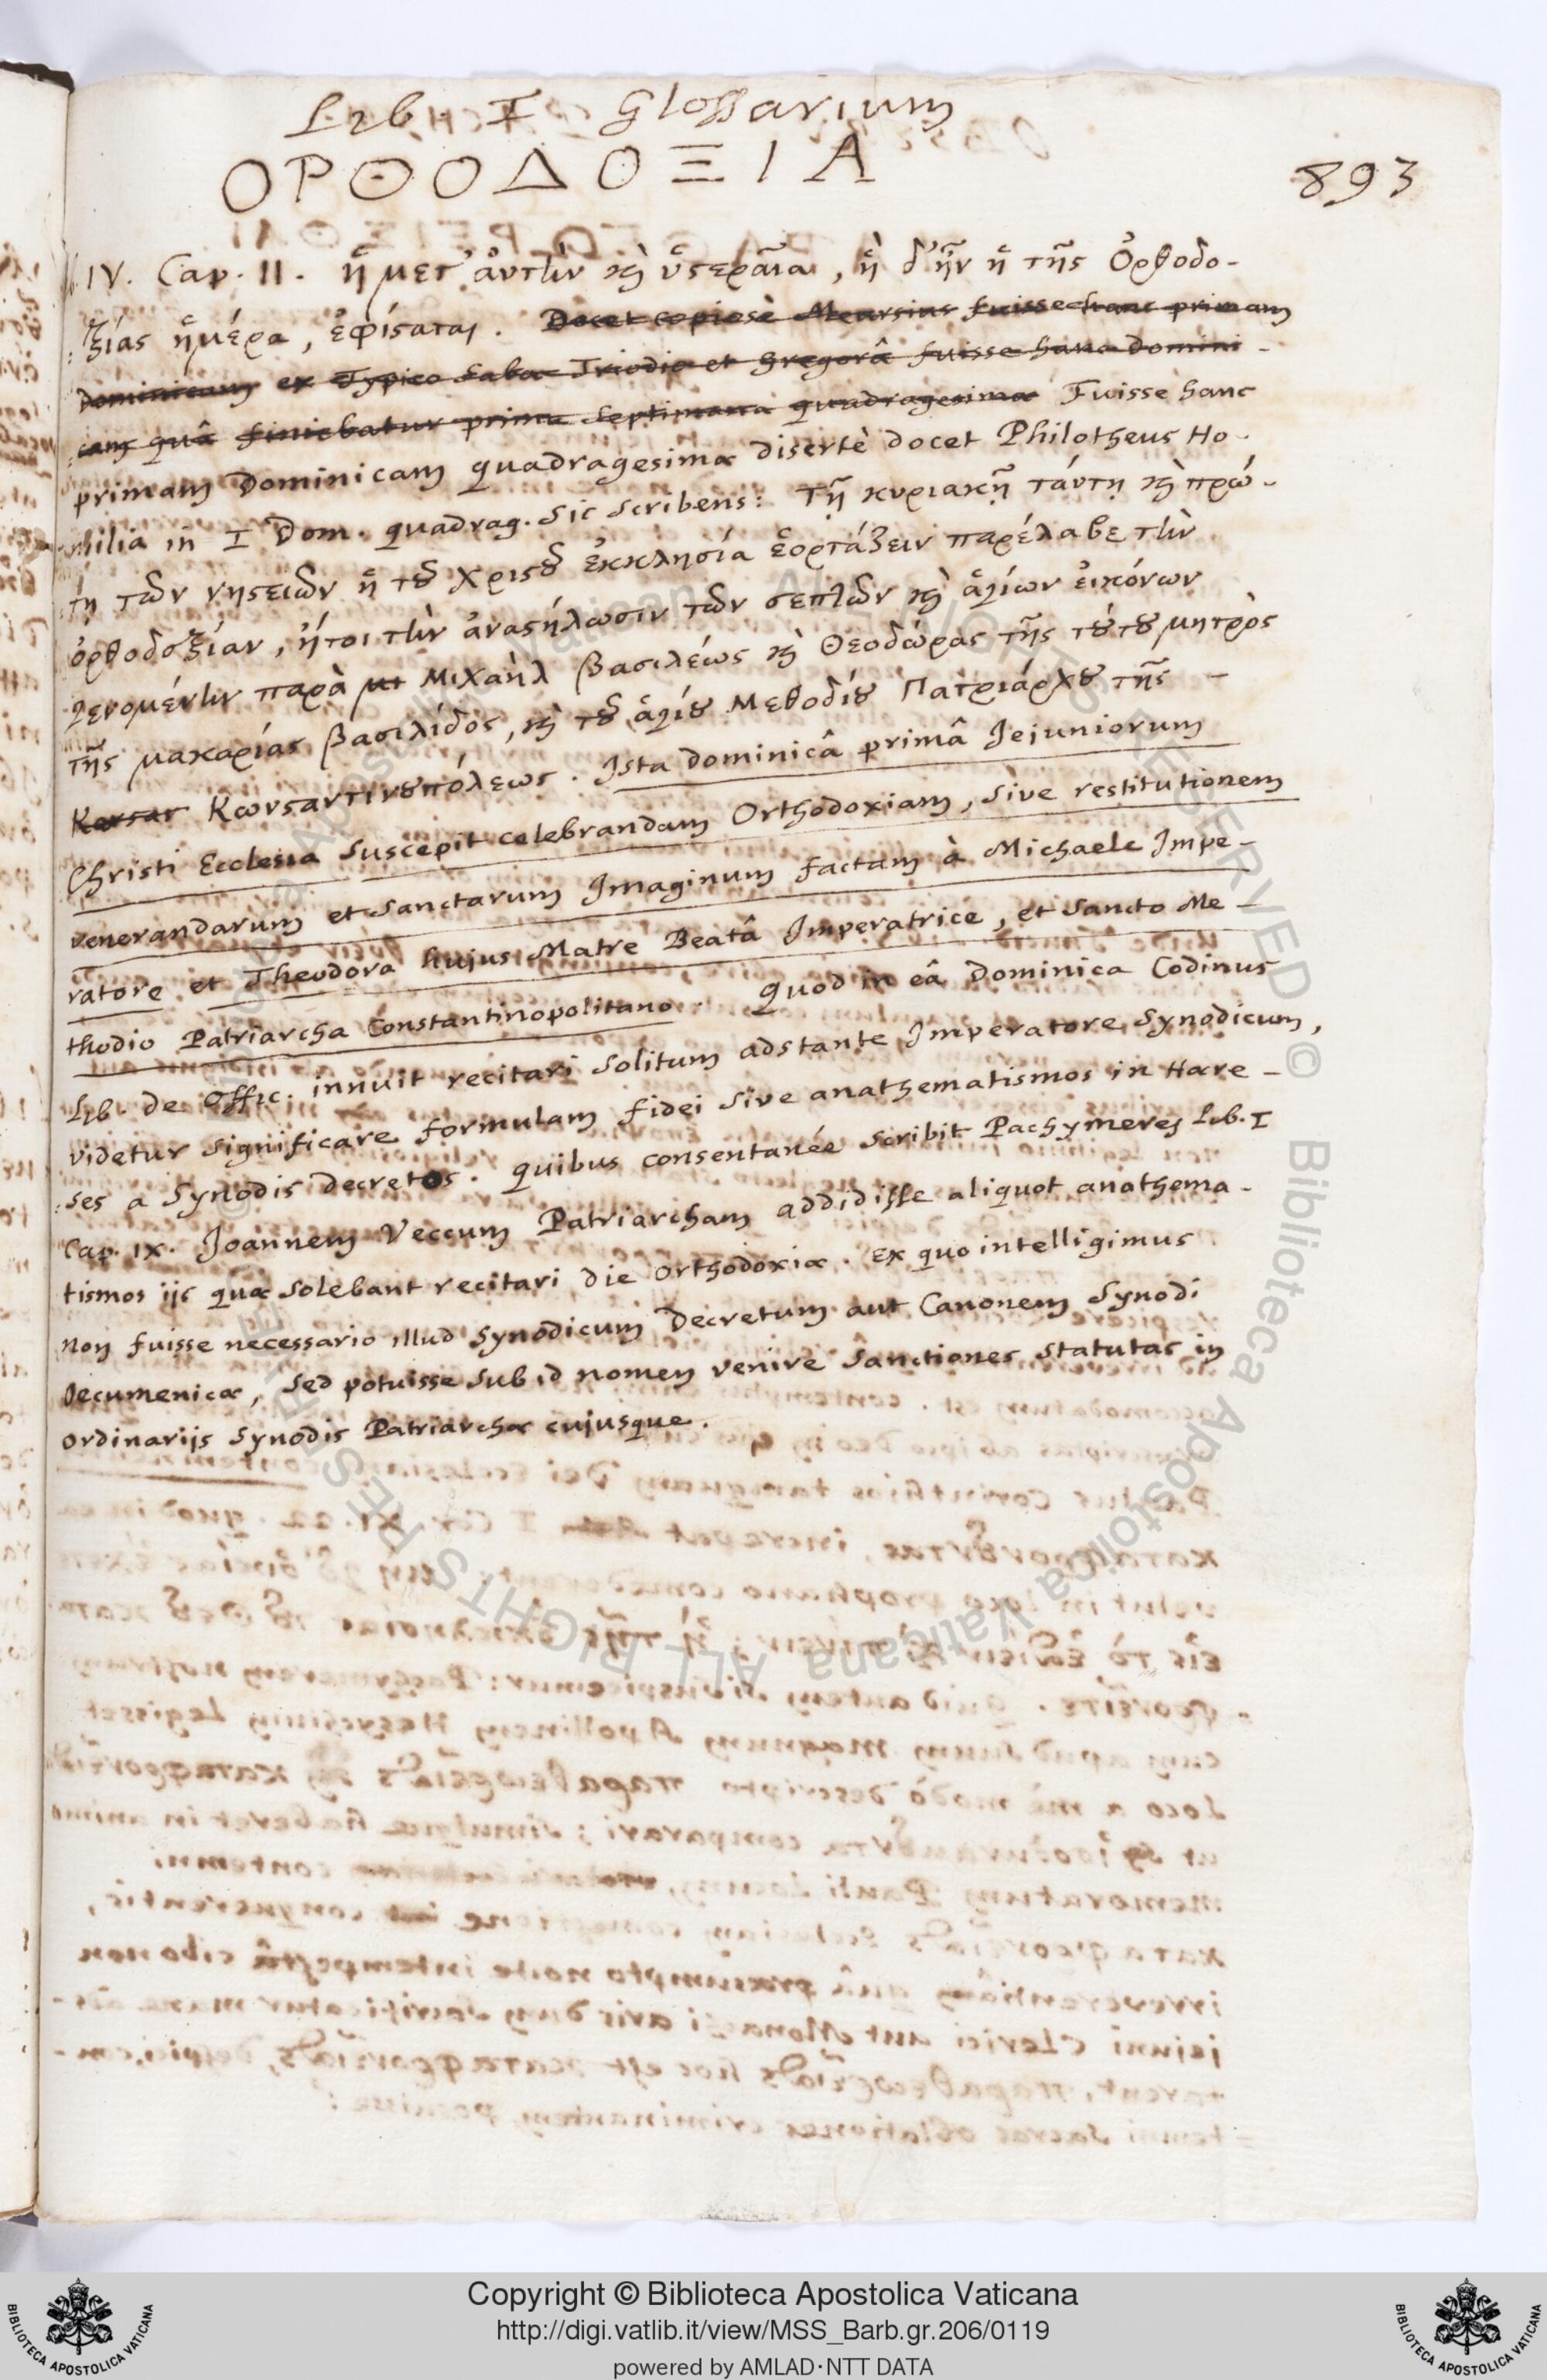 Lib. I Glossarium
ΟΡΘΟΔΟΞΙΑ
893
lib. IV. Cap. II. ἡ μετ' ἀυτὴν καὶ ὑστεραῖα, ἡ δ' ἦν ἡ τῆς Ὀρθοδο-
ξίας ἡμέρα, ἐφίσταται. Docet copiosè Meursius fuisse hanc primam
Dominicam ex Typico Sabae Triodio et Gregorâ fuisse hanc Domini-
cam quâ finiebatur prima Septimana quadragesimae Fuisse hanc
primam Dominicam quadragesimae disertè docet Philotheus Ho-
milia in I Dom. quadrag. sic scribens: Τῇ κυριακῇ ταύτῃ καὶ πρώ-
τῃ τῶν νηστειῶν ἡ τοῦ Χριστοῦ ἐκκλησία ἑορτάζειν παρέλαβε τὴν
ὀρθοδοξίαν, ἤτοι τὴν ἀναστήλωσιν τῶν σεπτῶν καὶ ἁγίων εἰκόνων
γενομένην παρὰ μι Μιχαὴλ βασιλέως καὶ Θεοδώρας τῆς τούτου μητρὸς
τῆς μακαρίας βασιλίδος, καὶ τοῦ ἁγίου Μεθοδίου Πατριάρχου τῆς
Κονσταν Κωνσταντινουπόλεως. Ista dominicâ primâ Jejuniorum
Christi Ecclesia suscepit celebrandam Orthodoxiam, sive restitutionem
venerandarum et sanctarum Imaginum factam à Michaele Impe-
ratore et Theodora hujus Matre Beatâ Imperatrice, et Sancto Me-
thodio Patriarcha Constantinopolitano. Quod in eâ Dominica Codinus
Lib. de Offic. innuit recitari solitum adstante Imperatore Synodicum,
videtur significare formulam fidei sive anathematismos in Haere-
ses a Synodis decretos. quibus consentanée scribit Pachymeres Lib. I
Cap. IX. Joannem Veccum Patriarcham addidisse aliquot anathema-
tismos iis quae solebant recitari die Orthodoxiae. Ex quo intelligimus
non fuisse necessario illud Synodicum Decretum aut Canonem Synodi
Oecumenicae, sed potuisse sub id nomen venire Sanctiones statutas in
ordinariis Synodis Patriarchae cujusque.
Copyright © Biblioteca Apostolica Vaticana
http://digi.vatlib.it/view/MSS_Barb.gr.206/0119
powered by AMLAD·NTT DATA
BIBLIOTECA APOSTOLICA VATICANA
BIBLIOTECA APOSTOLICA VATICANA